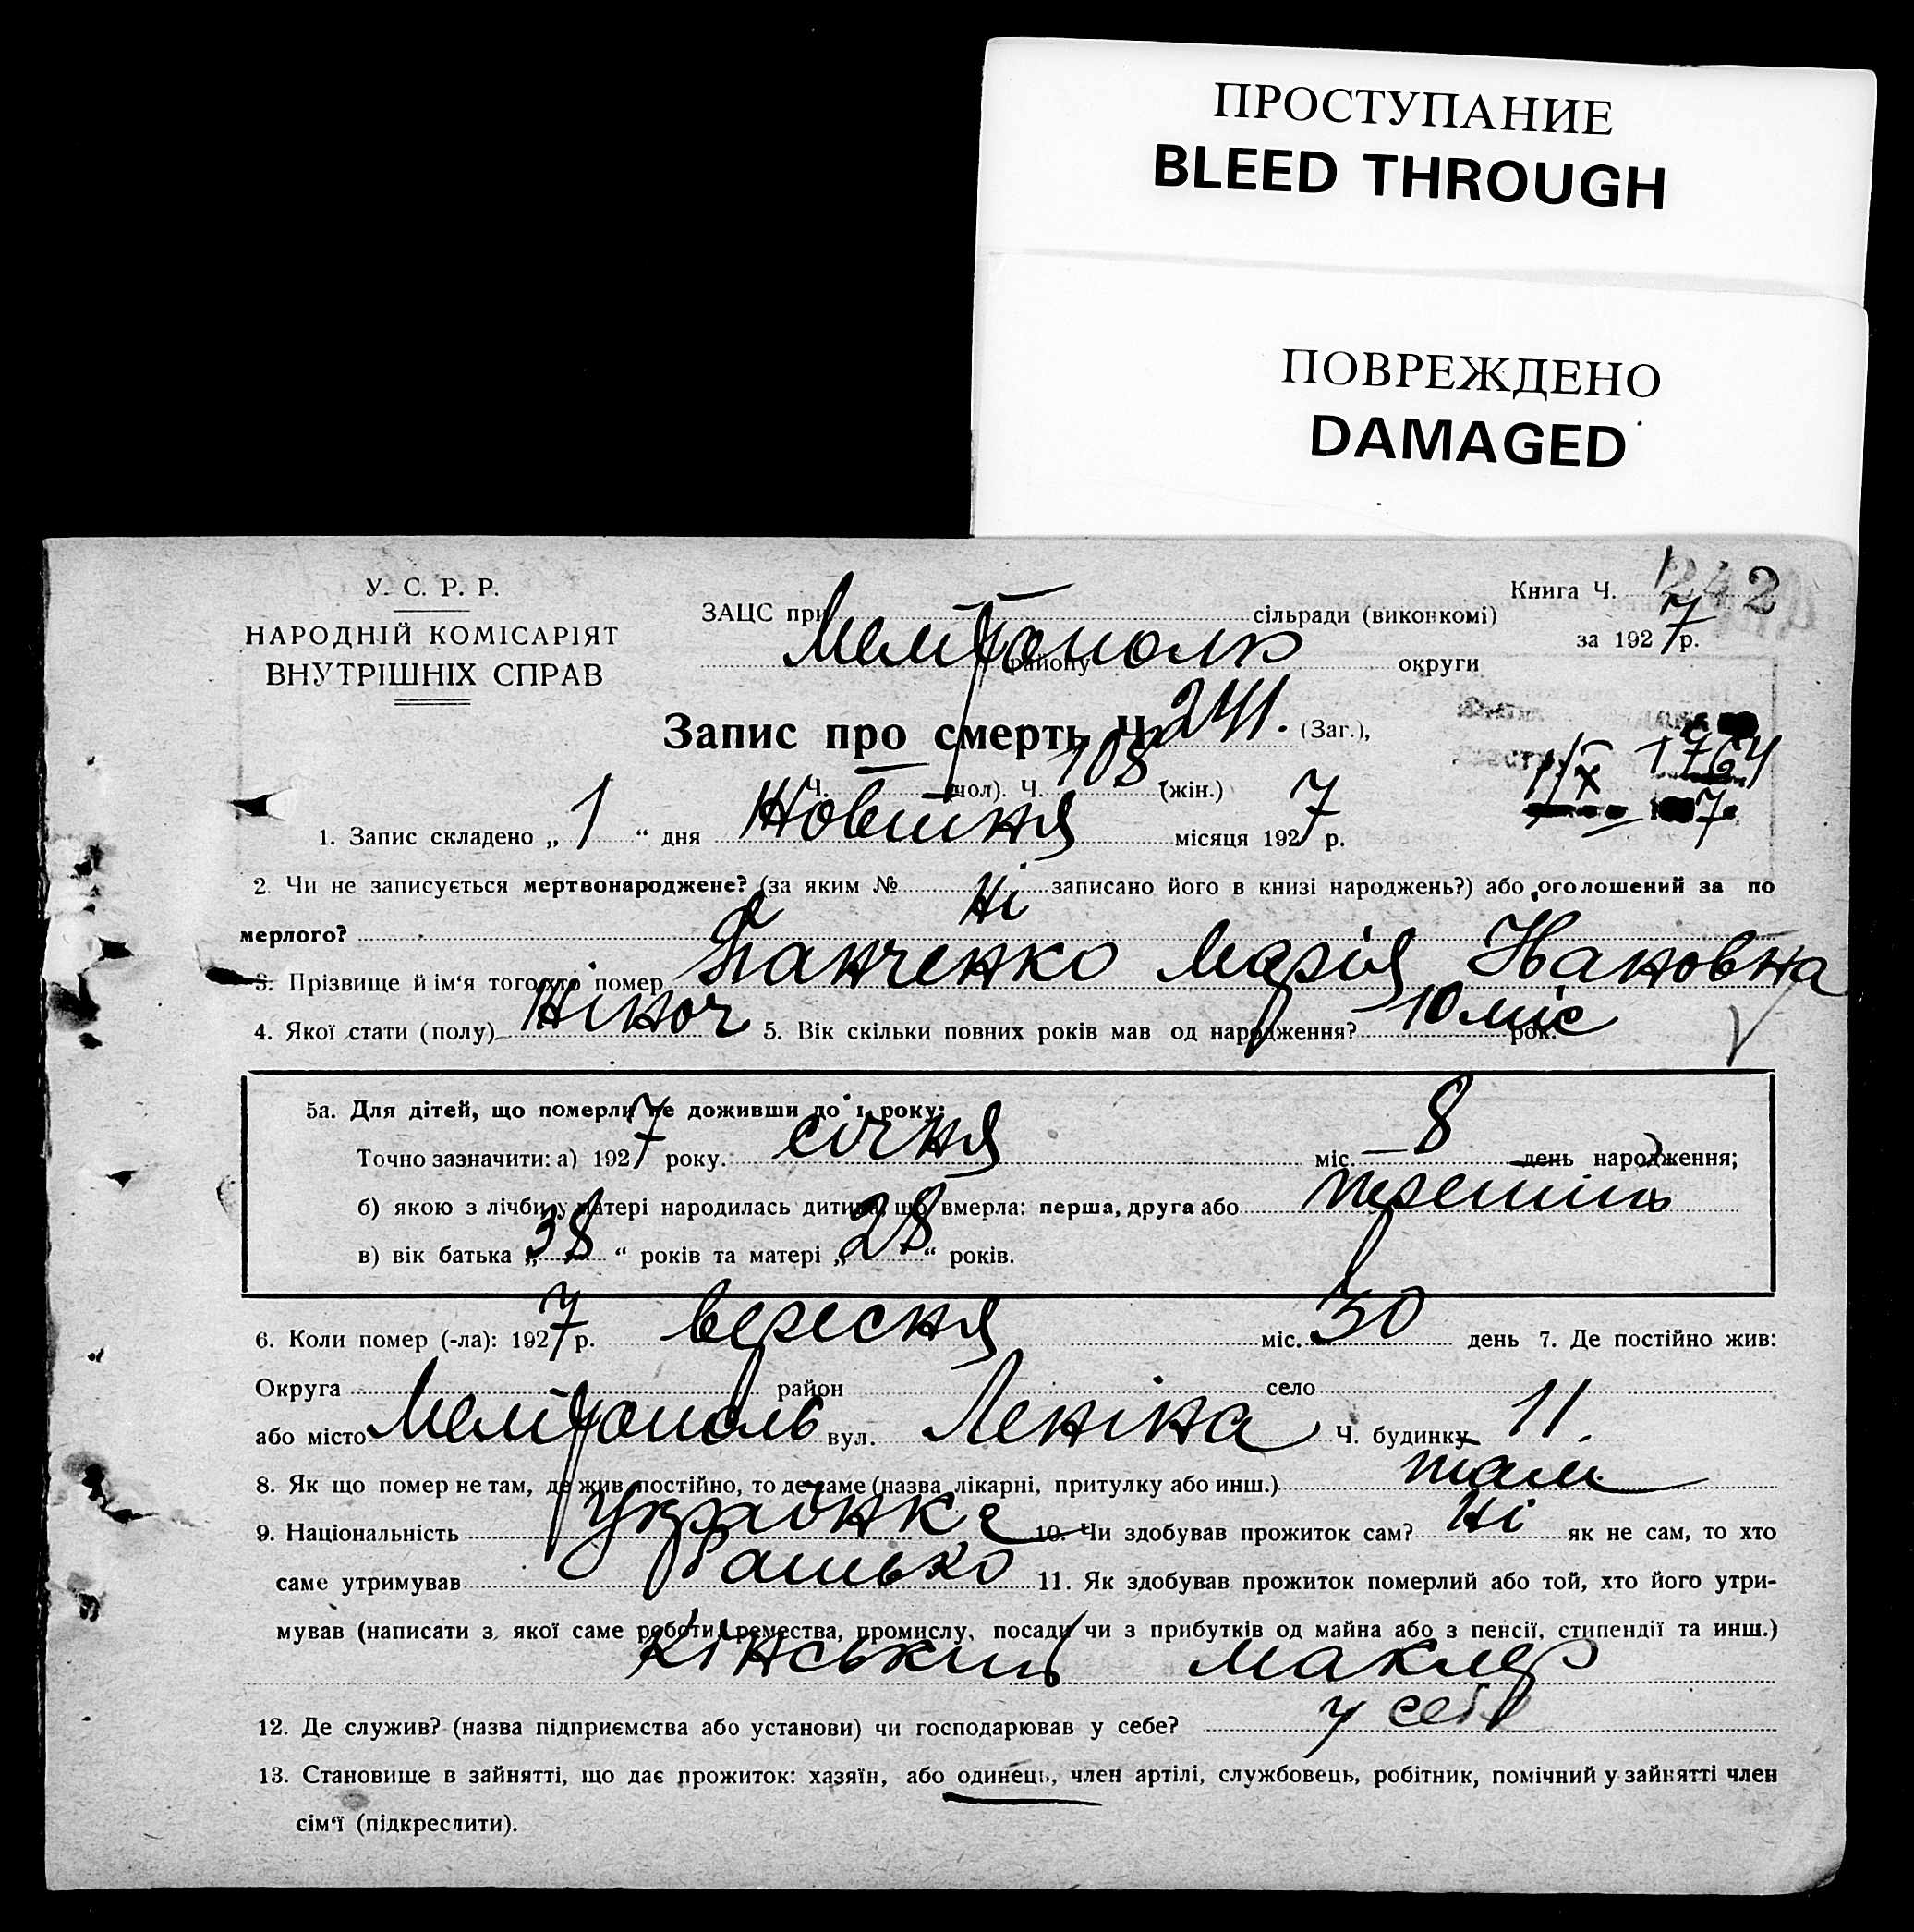 ПРОСТУПАНИЕ
BLEED THROUGH
ПОВРЕЖДЕНО
DAMAGED
У. С. Р. Р.
НАРОДНІЙ КОМІСАРІЯТ
ВНУТРІШНІХ СПРАВ
Книга Ч. 242
ЗАЦС при сільради (виконкомі)
за 1927 р.
Мелітополь району округи
Запис про смерть Ч. 241. (Заг.),
Ч. (чол). Ч. 108 (жін.)
1/X 1764
7
1. Запис складено „ 1 “ дня Жовтня місяця 1927 р.
2. Чи не записується мертвонароджене? (за яким № Ні записано його в книзі народжень?) або оголошений за по
мерлого?
3. Прізвище й ім'я того хто помер Панченко Марія Івановна
4. Якої стати (полу) жіноч 5. Вік скільки повних років мав од народження? 10 міс рок.
5а. Для дітей, що померли не доживши до 1 року:
Точно зазначити: а) 1927 року. січня міс. 8 день народження;
б) якою з лічби у матері народилась дитина, що вмерла: перша, друга або
в) вік батька „ 38 “ років та матері „ 28 “ років.
6. Коли помер (-ла): 1927 р. вересня міс. 30 день 7. Де постійно жив:
Округа район село
або місто Мелітополь вул. Леніна Ч. будинку 11
8. Як що помер не там, де жив постійно, то де саме (назва лікарні, притулку або инш.) там
9. Національність Українка 10. Чи здобував прожиток сам? Ні як не сам, то хто
саме утримував Батько 11. Як здобував прожиток померлий або той, хто його утри-
мував (написати з якої саме роботи, ремества, промислу, посади чи з прибутків од майна або з пенсії, стипендії та инш.)
Кінський маклер
12. Де служив? (назва підприємства або установи) чи господарював у себе? у себе
13. Становище в зайнятті, що дає прожиток: хазяїн, або одинець, член артілі, службовець, робітник, помічний у зайнятті член
сім'ї (підкреслити).